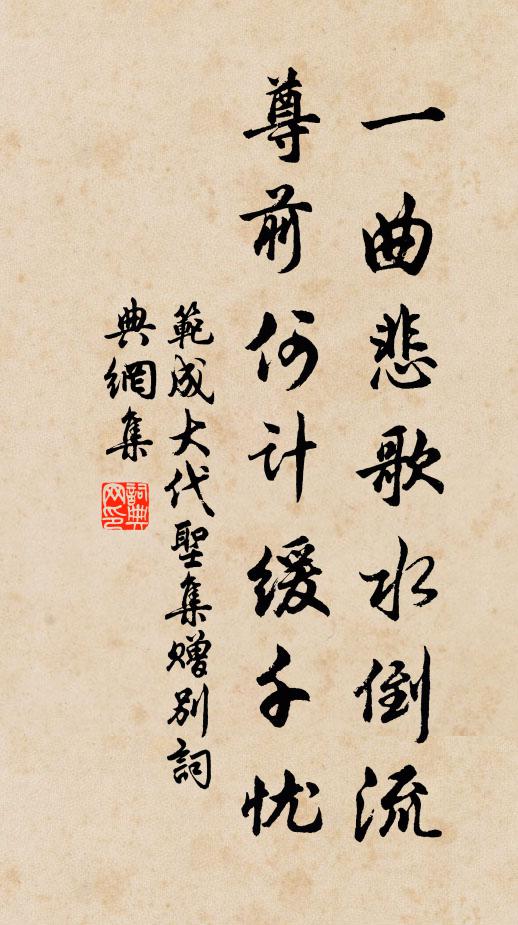 一曲悲歌水倒流
尊前何计缓千忧
範成大代聖集赠别詞
典網集
詞典网印